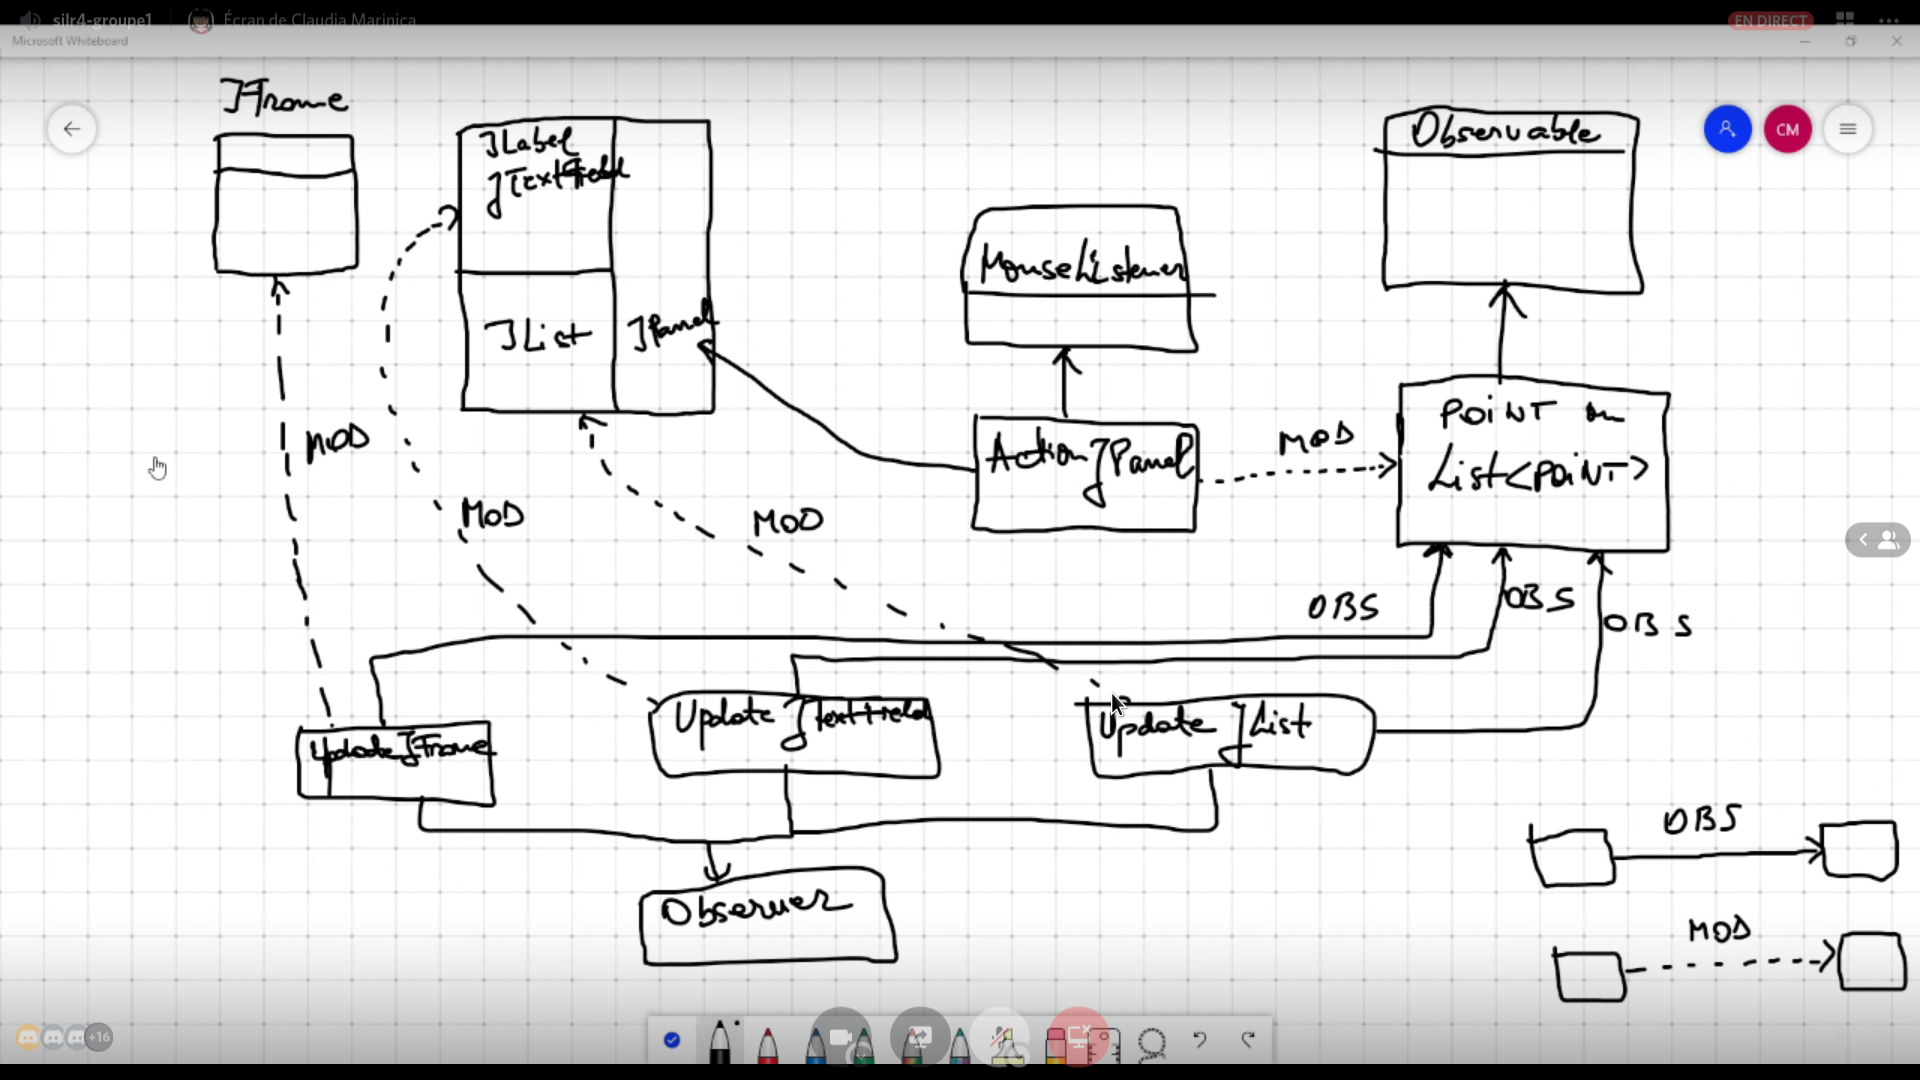 silr4-groupe1
Écran de Claudia Marinica
EN DIRECT
Microsoft Whiteboard
JFrame
JLabel
JTextField
JList
JPanel
MouseListener
Observable
CM
Action JPanel
MOD
POINT ou
List<POINT>
MOD
MOD
MOD
OBS
OBS
OBS
Update JFrame
Update JTextField
Update JList
Observer
OBS
MOD
+16